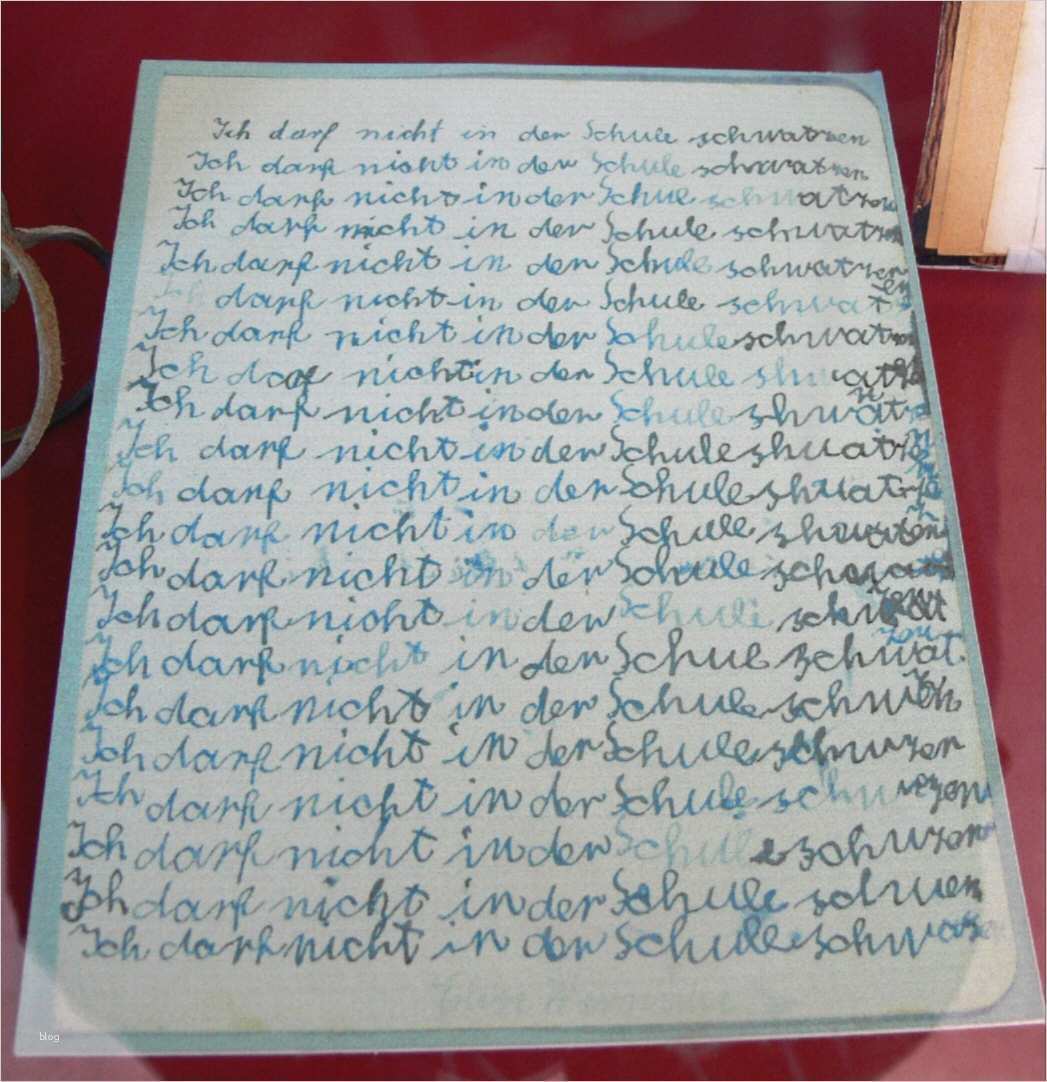 Ich darf nicht in der Schule schwatzen
Ich darf nicht in der Schule schwatzen
Ich darf nicht in der Schule schwatzen
Ich darf nicht in der Schule schwatzen
Ich darf nicht in der Schule schwatzen
Ich darf nicht in der Schule schwatzen
Ich darf nicht in der Schule schwatzen
Ich darf nicht in der Schule
Ich darf nicht in der Schule
Ich darf nicht in der Schule
Ich darf nicht in der Schule
Ich darf nicht in der Schule
Ich darf nicht in der Schule
Ich darf nicht in der Schule
Ich darf nicht in der Schule
Ich darf nicht in der Schule
Ich darf nicht in der Schule
Ich darf nicht in der Schule
Ich darf nicht in der Schule
Ich darf nicht in der Schule
Ich darf nicht in der Schule
blog